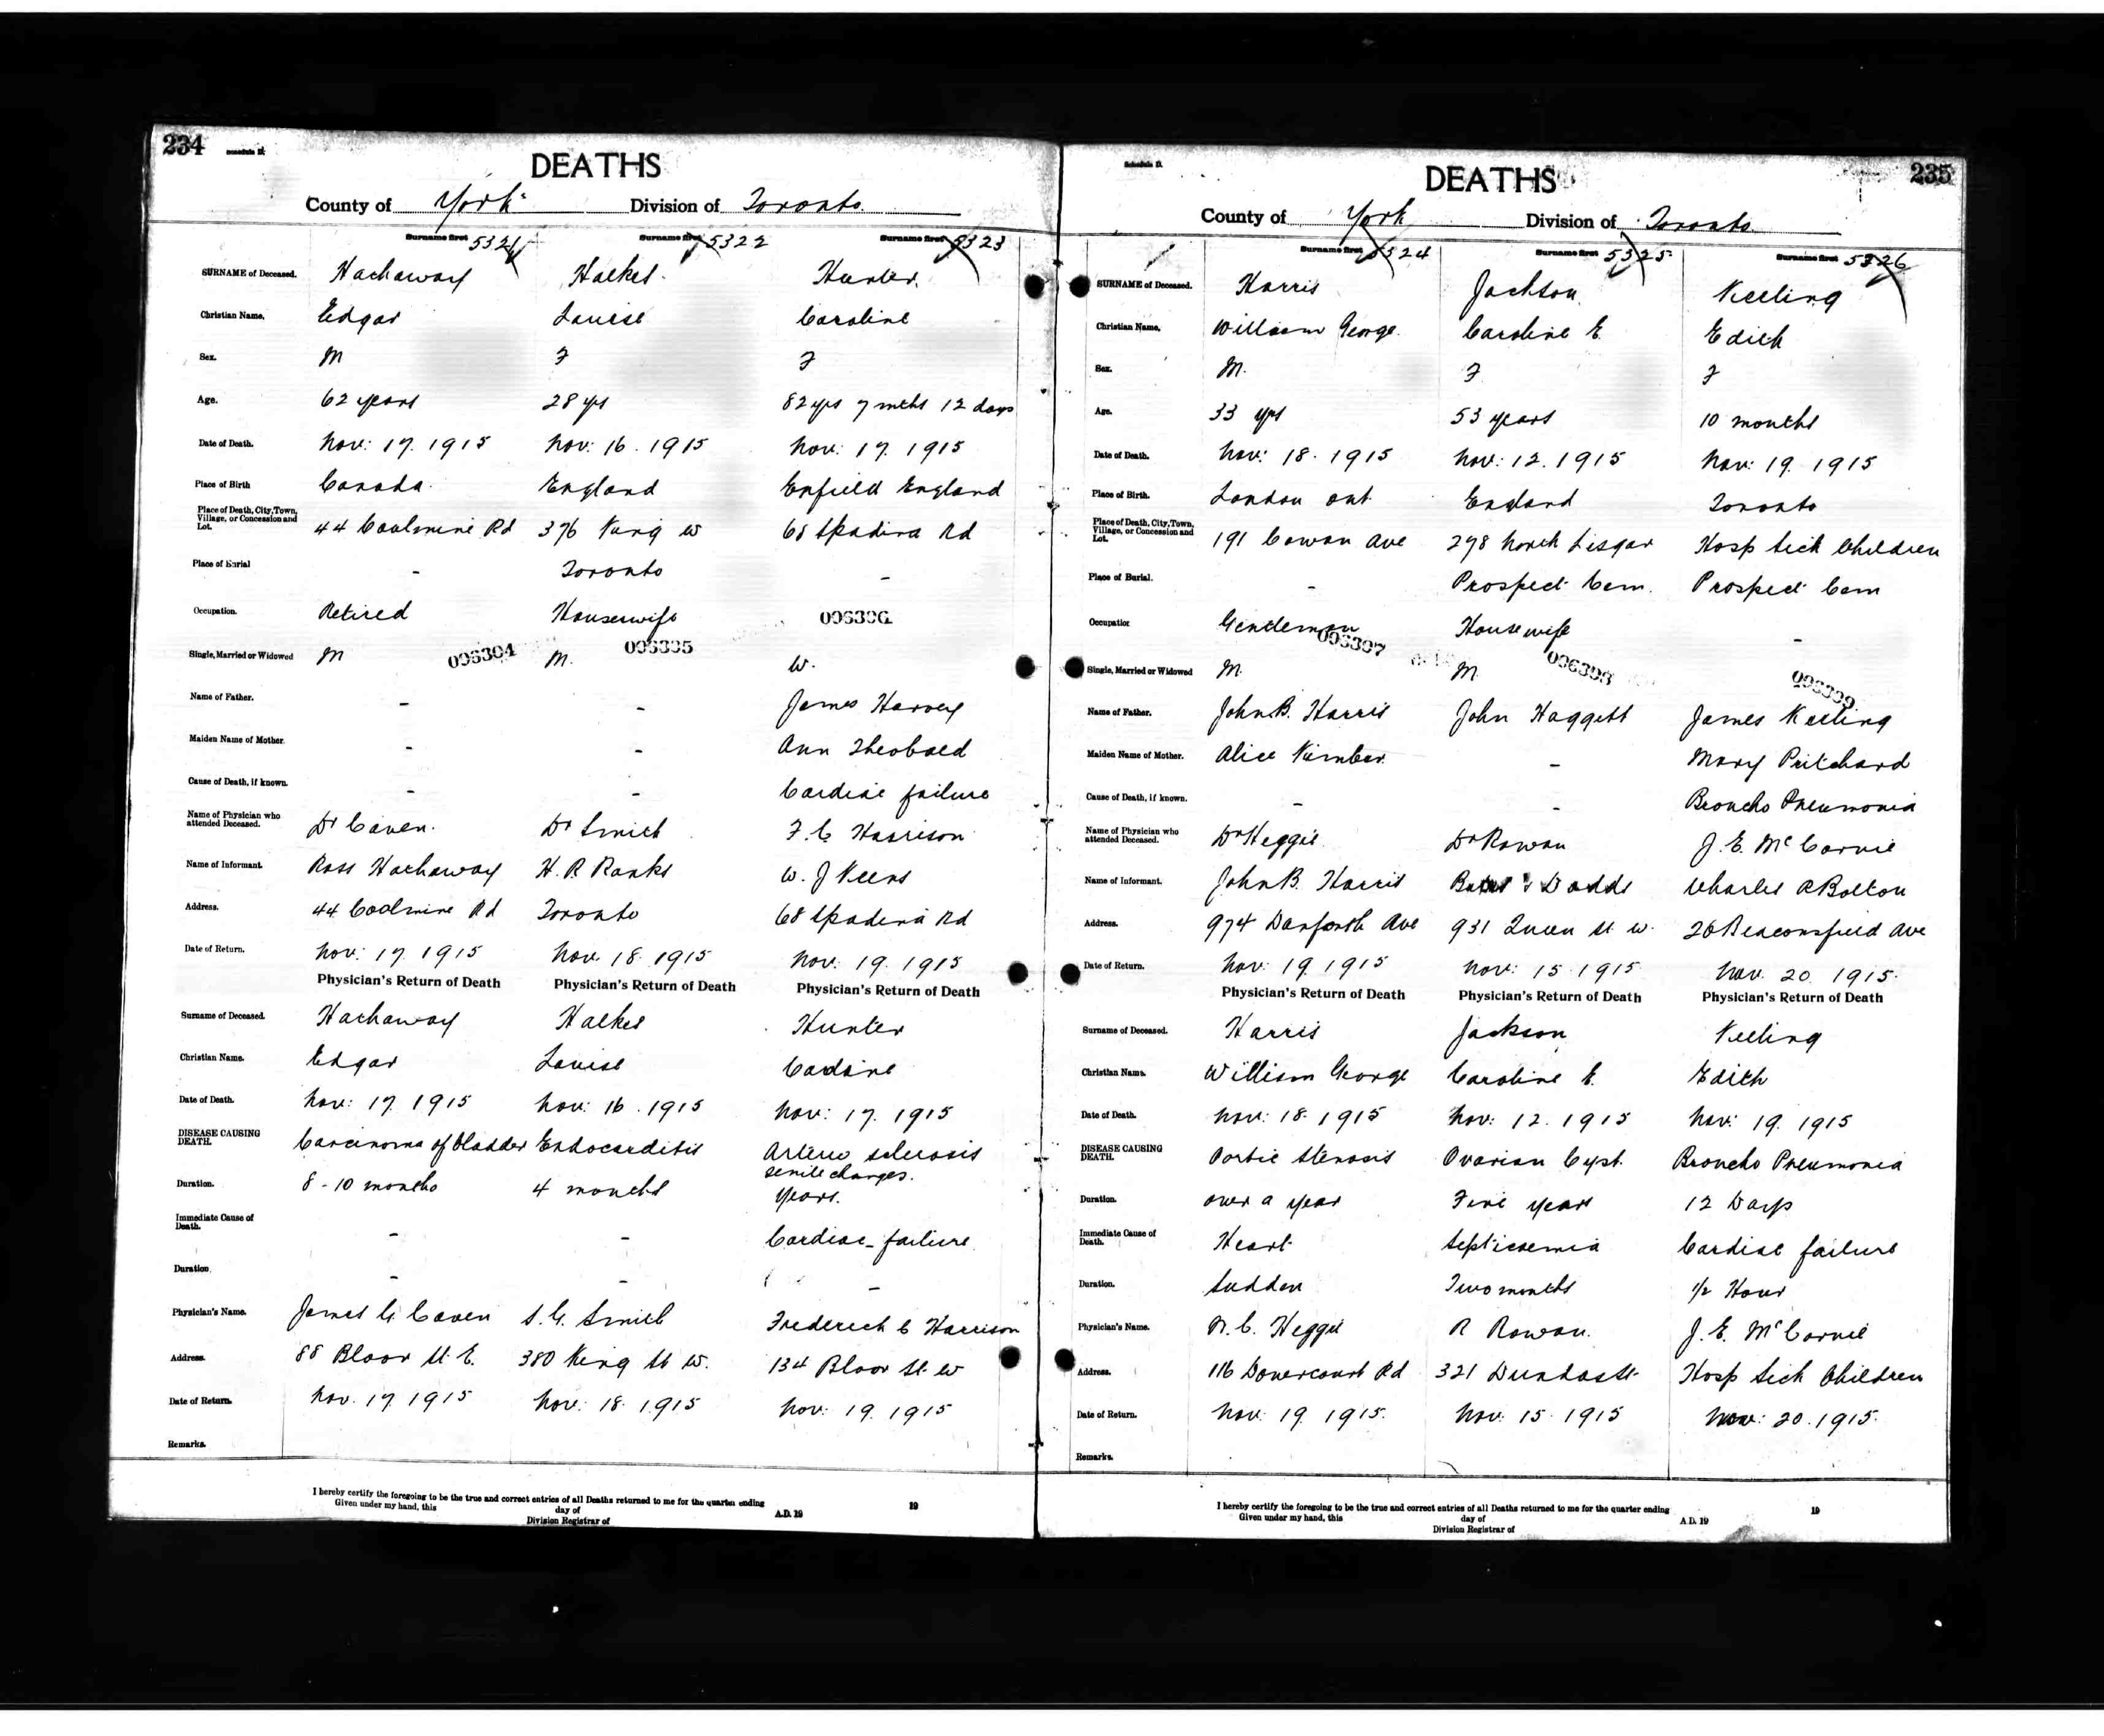 234
Schedule D.
DEATHS
County of York Division of Toronto
Surname first 5321 Surname first 5322 Surname first 5323
SURNAME of Deceased. Hachaway Halket Hunter
Christian Name. Edgar Louise Caroline
Sex. M F F
Age. 62 years 28 yrs 82 yrs 7 mths 12 days
Date of Death. Nov: 17. 1915 Nov: 16. 1915 Nov: 17. 1915
Place of Birth Canada England Enfield England
Place of Death, City, Town, Village, or Concession and Lot. 44 Coulmine Rd 376 King W 68 Spadina Rd
Place of Burial - Toronto -
Occupation. Retired Housewife 006306
Single, Married or Widowed M 006304 M. 006305 W.
Name of Father. - - James Harvey
Maiden Name of Mother. - - Ann Theobald
Cause of Death, if known. - - Cardiac failure
Name of Physician who attended Deceased. Dr Caven. Dr Smith F. C. Harrison
Name of Informant. Ross Hachaway H. R. Ranks W. J Keens
Address. 44 Coolmine Rd Toronto 68 Spadina Rd
Date of Return. Nov: 17. 1915 Nov. 18. 1915 Nov. 19. 1915
Physician's Return of Death Physician's Return of Death Physician's Return of Death
Surname of Deceased. Hachaway Halket Hunter
Christian Name. Edgar Louise Caroline
Date of Death. Nov: 17. 1915 Nov: 16. 1915 Nov: 17. 1915
DISEASE CAUSING DEATH. Carcinoma of bladder Endocarditis Arterio sclerosis
senile changes.
Duration. 8-10 months 4 months years.
Immediate Cause of Death. - - Cardiac failure
Duration. - - -
Physician's Name. James G. Caven S. G. Smith Frederick C Harrison
Address. 88 Bloor St. E. 380 King St W. 134 Bloor St W
Date of Return. Nov. 17 1915 Nov: 18. 1915 Nov: 19. 1915
Remarks.
I hereby certify the foregoing to be the true and correct entries of all Deaths returned to me for the quarter ending 19
Given under my hand, this day of A.D. 19
Division Registrar of
235
Schedule D.
DEATHS
County of York Division of Toronto
Surname first 5324 Surname first 5325 Surname first 5326
SURNAME of Deceased. Harris Jackson Keeling
Christian Name. William George Caroline E. Edith
Sex. M. F F
Age. 33 yrs 53 years 10 months
Date of Death. Nov: 18. 1915 Nov: 12. 1915 Nov: 19. 1915
Place of Birth. London Ont England Toronto
Place of Death, City, Town, Village, or Concession and Lot. 191 Cowan Ave 298 North Lisgar Hosp Sick Children
Place of Burial. - Prospect Cem. Prospect Cem
Occupation Gentleman 006307 Housewife -
Single, Married or Widowed M. M 006308 006309
Name of Father. John B. Harris John Haggett James Keeling
Maiden Name of Mother. Alice Kimber. - Mary Pritchard
Cause of Death, if known. - - Broncho Pneumonia
Name of Physician who attended Deceased. Dr Heggie Dr Rowan J. E. McCorvie
Name of Informant. John B. Harris Bates & Dodds Charles R Bolton
Address. 974 Danforth Ave 931 Queen St W. 26 Beaconsfield Ave
Date of Return. Nov: 19. 1915 Nov: 15 1915 Nov. 20 1915.
Physician's Return of Death Physician's Return of Death Physician's Return of Death
Surname of Deceased. Harris Jackson Keeling
Christian Name. William George Caroline E. Edith
Date of Death. Nov: 18. 1915 Nov: 12. 1915 Nov: 19. 1915
DISEASE CAUSING DEATH. Aortic Stenosis Ovarian Cyst. Broncho Pneumonia
Duration. over a year Five years 12 Days
Immediate Cause of Death. Heart Septicaemia Cardiac failure
Duration. Sudden Two months 1/2 Hour
Physician's Name. N. C. Heggie R Rowan. J. E. McCorvie
Address. 116 Dovercourt Rd 321 Dundas St Hosp Sick Children
Date of Return. Nov: 19. 1915. Nov: 15. 1915 Nov: 20. 1915.
Remarks.
I hereby certify the foregoing to be the true and correct entries of all Deaths returned to me for the quarter ending 19
Given under my hand, this day of A.D. 19
Division Registrar of